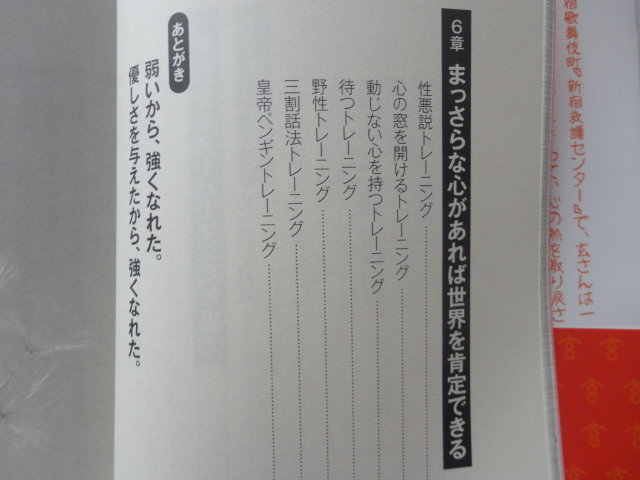 宿歌舞伎町『新宿救護センター』で、玄さんは一
心の熱を取り戻さ
6章 まっさらな心があれば世界を肯定できる
性悪説トレーニング
心の窓を開けるトレーニング
動じない心を持つトレーニング
待つトレーニング
野性トレーニング
三割話法トレーニング
皇帝ペンギントレーニング
あとがき
弱いから、強くなれた。
優しさを与えたから、強くなれた。